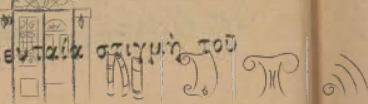 ευταία στιγμὴ τοῦ